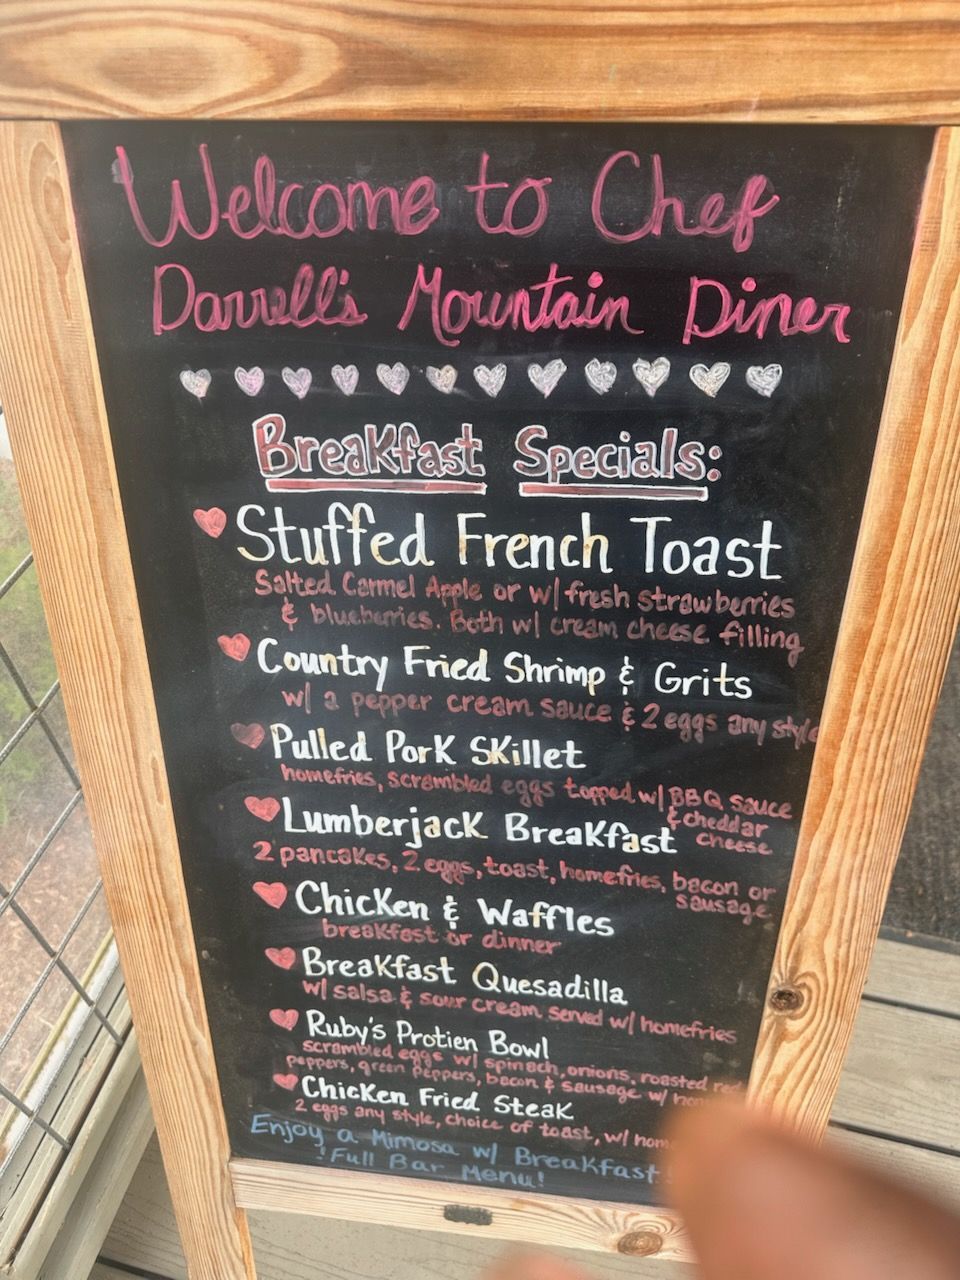 Welcome to Chef
Darrell's Mountain Diner
Breakfast Specials:
Stuffed French Toast
Salted Carmel Apple or w/ fresh strawberries
& blueberries. Both w/ cream cheese filling
Country Fried Shrimp & Grits
w/ a pepper cream sauce & 2 eggs any style
Pulled Pork Skillet
homefries, scrambled eggs topped w/ BBQ sauce
& cheddar
cheese
Lumberjack Breakfast
2 pancakes, 2 eggs, toast, homefries, bacon or
sausage
Chicken & Waffles
breakfast or dinner
Breakfast Quesadilla
w/ salsa & sour cream served w/ homefries
Ruby's Protien Bowl
scrambled eggs w/ spinach, onions, roasted red
peppers, green peppers, bacon & sausage w/
Chicken Fried Steak
2 eggs any style, choice of toast, w/
Enjoy a Mimosa w/ Breakfast
!Full Bar Menu!